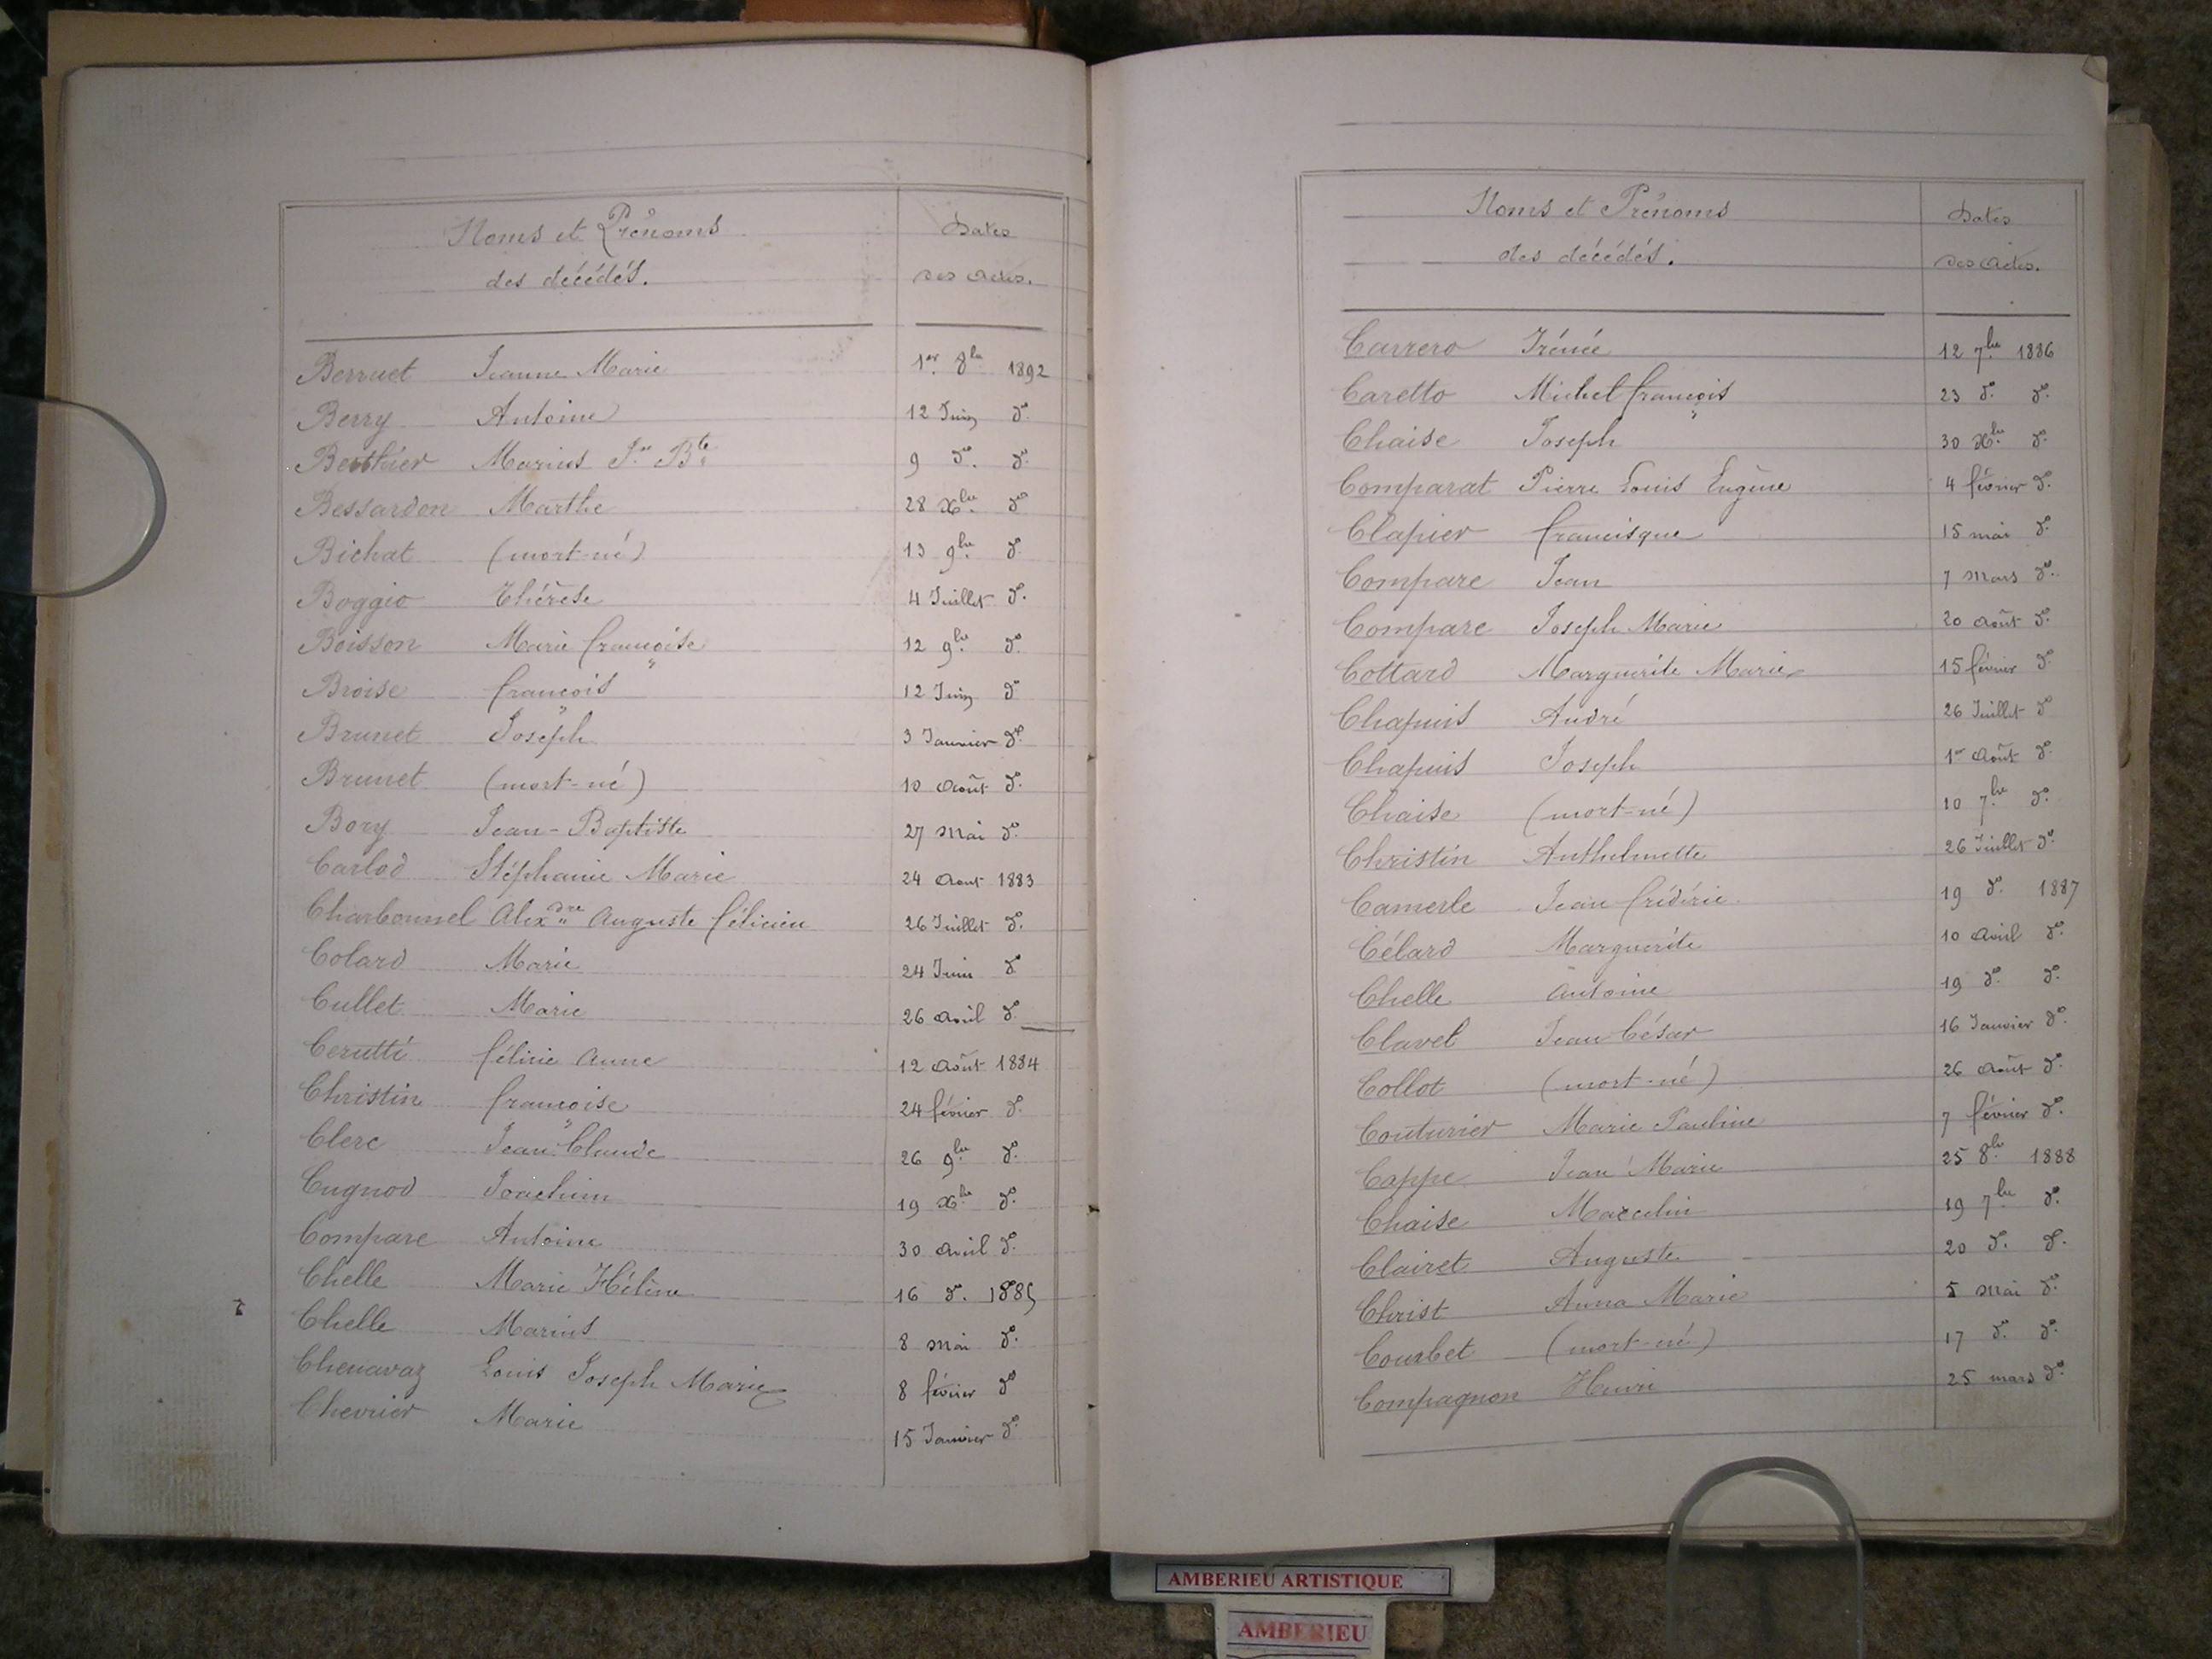 Noms et Prénoms
des décédés.
Dates
des actes.
Berruet Jeanne Marie 1er 8bre 1892
Berry Antoine 12 Juin do
Berthier Marius Jn Bte 9 do. do
Bessardon Marthe 28 Xbre do
Bichat (mort-né) 13 9bre do
Boggio Thérèse 4 Juillet do.
Boisson Marie françoise 12 9bre do
Broise françois 12 Juin do
Brunet Joseph 3 Janvier do
Brunet (mort-né) 10 Août do.
Bory Jean-Baptiste 27 Mai do
Carlod Stéphanie Marie 24 Aout 1883
Charbonnel Alexdre Auguste félicien 26 Juillet do.
Colard Marie 24 Juin do
Cullet Marie 26 Avril do
Cerutti félicie Anne 12 Août 1884
Christin françoise 24 février do
Clerc Jean Claude 26 9bre do.
Cugnod Joachim 19 Xbre do.
Compare Antoine 30 Avril do.
Chelle Marie Hélène 16 do. 1885
Chelle Marius 8 Mai do.
Chenavaz Louis Joseph Marie 8 février do
Chevrier Marie 15 Janvier do
Noms et Prénoms
des décédés.
Dates
des actes.
Carrero Irénée 12 7bre 1886
Caretto Michel françois 23 do. do.
Chaise Joseph 30 Xbre do.
Comparat Pierre Louis Eugène 4 février do.
Clapier francisque 15 mai do.
Compare Jean 7 Mars do.
Compare Joseph Marie 20 Août do.
Cottard Marguerite Marie 15 février do
Chapuis André 26 Juillet do
Chapuis Joseph 1er Août do.
Chaise (mort-né) 10 7bre do.
Christin Anthelmette 26 Juillet do
Camerle Jean frédéric 19 do. 1887
Célard Marguerite 10 Avril do.
Chelle Antoine 19 do. do.
Clavel Jean César 16 Janvier do.
Collot (mort-né) 26 Août do.
Couturier Marie Pauline 7 février do.
Cappe Jean Marie 25 8bre 1888
Chaise Marcelin 19 7bre do.
Clairet Auguste 20 do. do.
Christ Anna Marie 5 Mai do.
Courbet (mort-né) 17 do. do.
Compagnon Henri 25 mars do.
AMBERIEU ARTISTIQUE
AMBERIEU